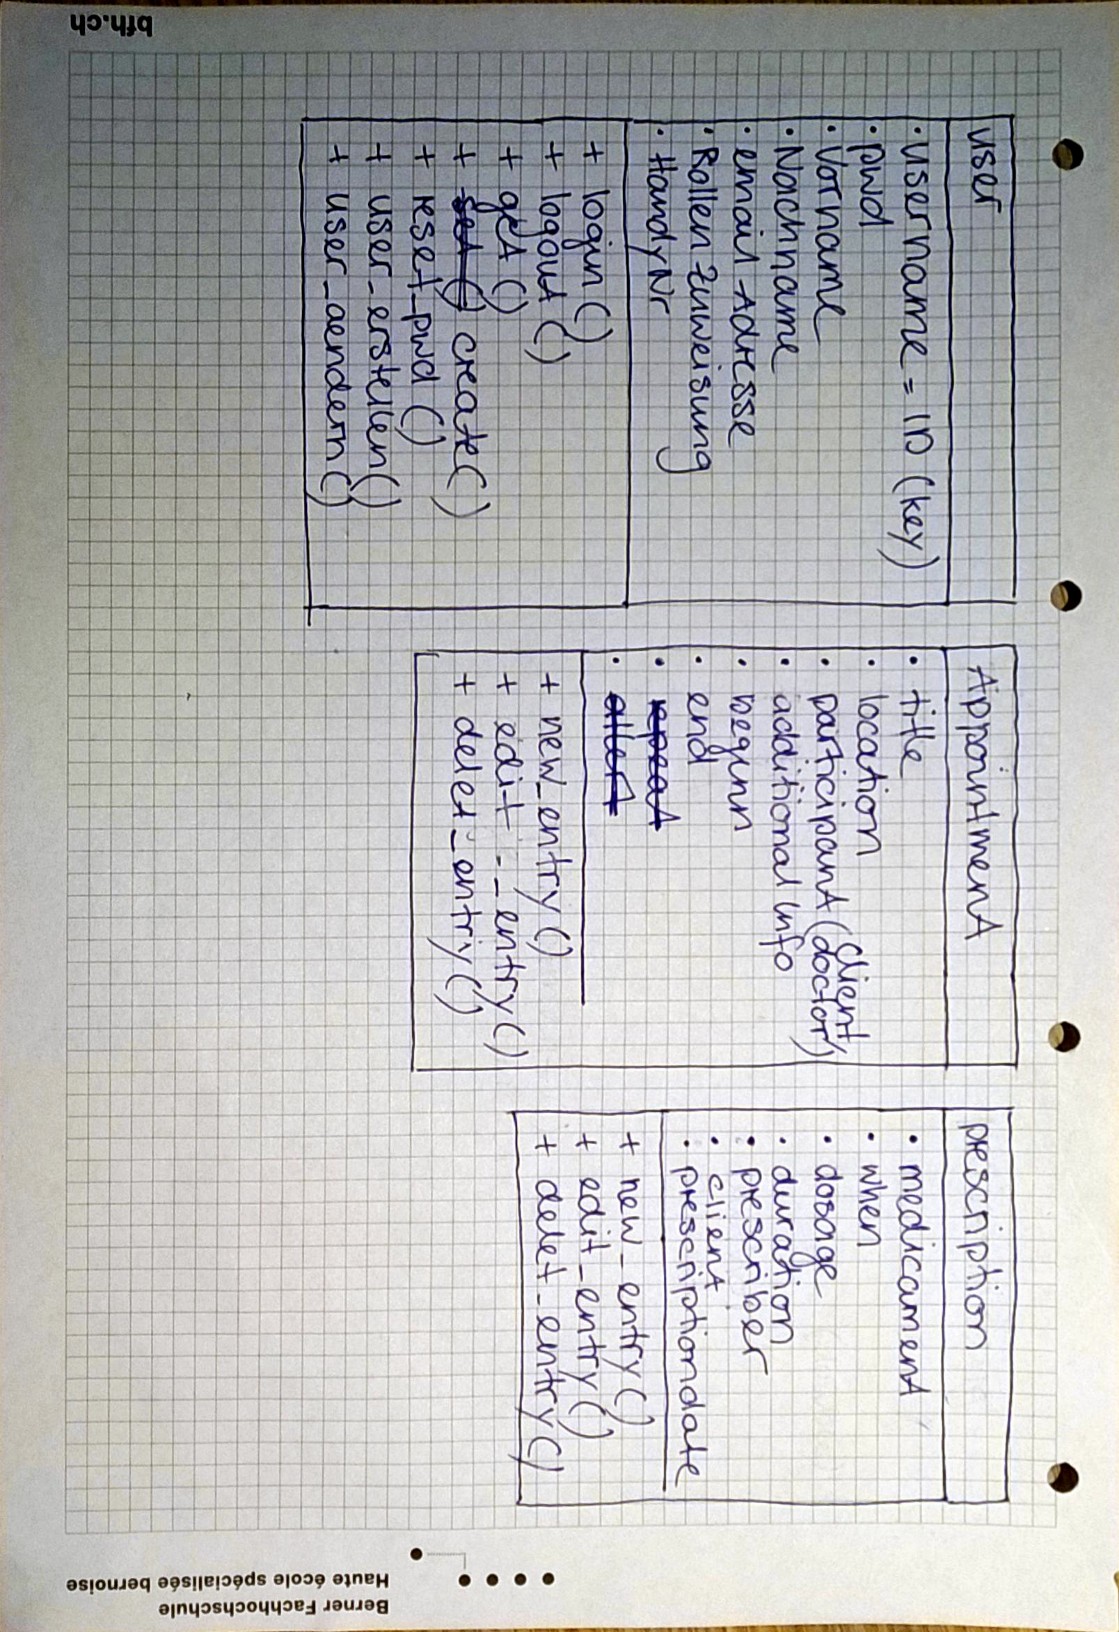 user
· username = ID (key)
· pwd
· Vorname
· Nachname
· email-Adresse
· Rollen Zuweisung
· HandyNr
+ login ()
+ logout ()
+ get ()
+ set () create ()
+ reset_pwd ()
+ user_erstellen()
+ user_aendern()
Appointment
· title
· location
· participant (client, doctor)
· additional info
· beginn
· end
· repeat
· alert
+ new_entry()
+ edit_entry()
+ delet_entry()
prescription
· medicament
· when
· dosage
· duration
· prescriber
· client
· prescriptiondate
+ new_entry()
+ edit_entry()
+ delet_entry()
bfh.ch
Berner Fachhochschule
Haute école spécialisée bernoise